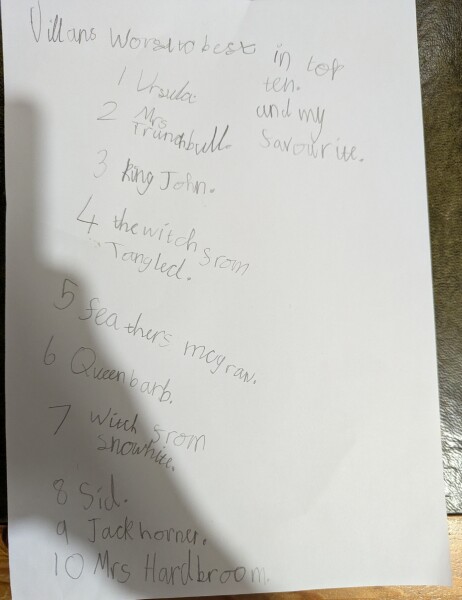 Villans Worst to best in top
ten.
and my
savourite.
1 Ursula.
2 Mrs
Trunchbull.
3 King John.
4 the witch srom
Tangled.
5 feathers mcgraw.
6 Queen barb.
7 Witch srom
snowhite.
8 Sid.
9 Jack horner.
10 Mrs Hardbroom.